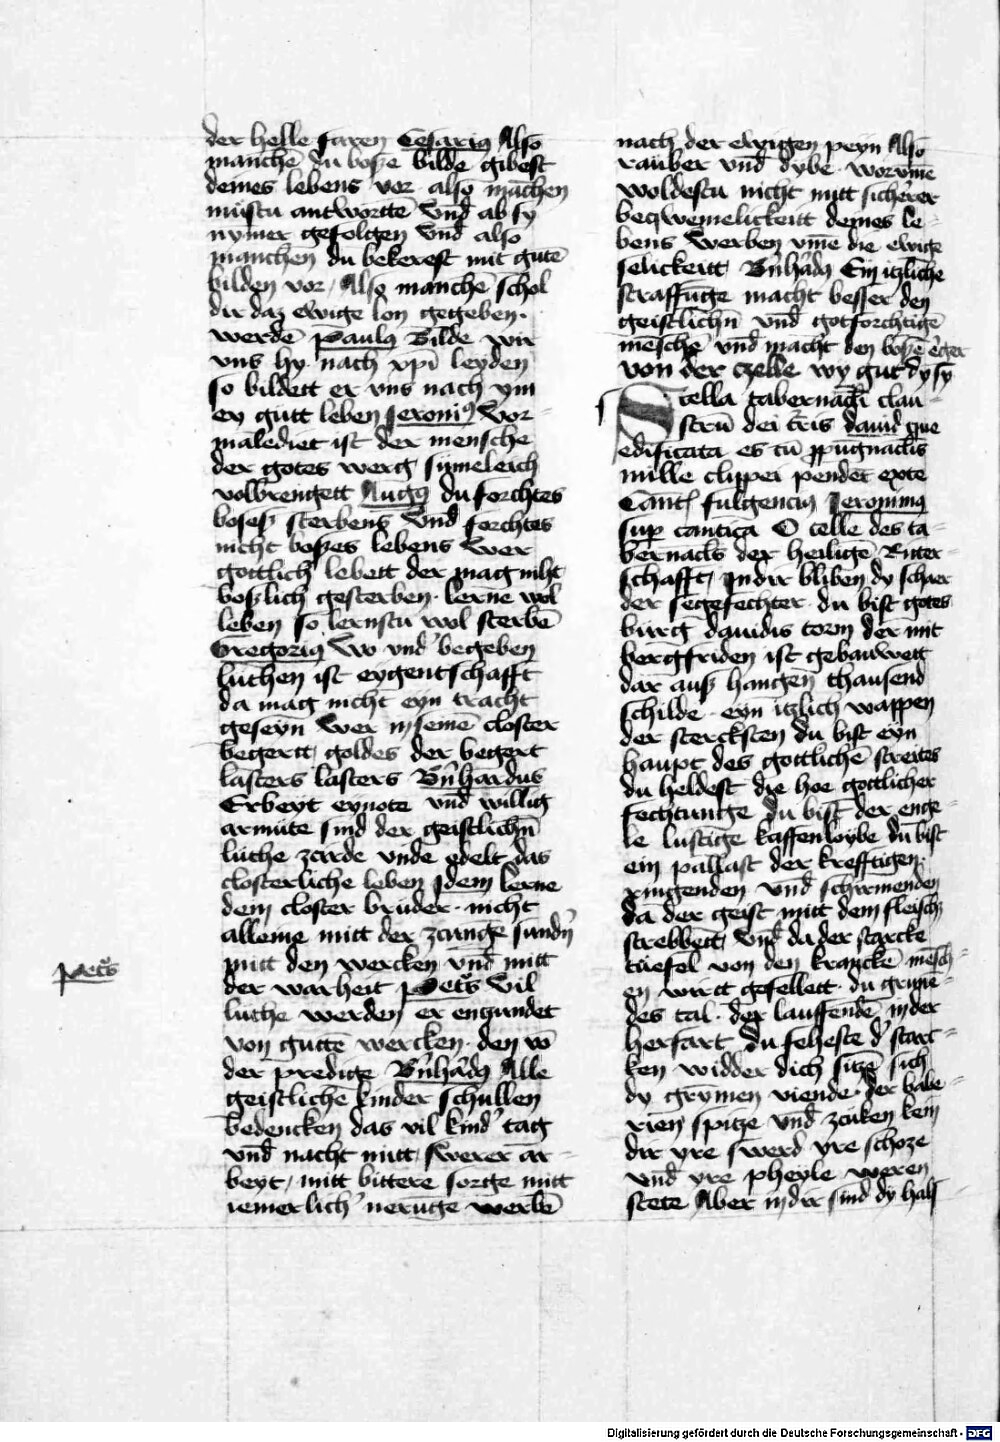 der helle faren Cesariꝰ Also
manchē du bosze bilde gibest
deines lebens vor also manchen
mustu antworttē vnd ab sy
nymer gefolgen vnd also
manchen du bekerest mit gutē
bilden vor / Also manchē schol
dir daz ewige lon gegeben ·
werdē Paulꝰ Bilde wir
vns hy nach xpī leyden
so bildett er vns nach ym
ey gutt leben Jeronīꝰ Vor-
maledict ist der mensche
der gotes werg sumeleich
volbrengett Augꝰ du forchtes
bosesz sterbens Vnd forchtes
nicht boszes lebens Wer
gottlich lebett der mag niht
boszlich gesterben · lerne wol
leben so lernstu wol sterbē
Gregoriꝰ Wo vnd' begeben
luthen ist eygentschafft
da mag nicht eyn tracht
geseyn Wer in seme closter
begertt goldes der begert
lasters lasters Bn̄hardus
Erbeyt eynote vnd willig
armute sind der geistlichn̄
luthe zcirde vnde edelt das
closterliche leben Idem lerne
dem closter bruder · nicht
alleine mitt der zcunge sundn̄
mitt den wercken vnd mitt
der warheit Petꝰs Vil
luthe werden er enzundet
von guttē wercken · den vō
der predige Bn̄hādꝰ Alle
geistlichē kinder schullen
bedencken das vil kind' tag
vnd nacht mitt swerer ar-
beyt / mitt bittere sorge mitt
iemerlich' nerūge werbē
Petꝰs
nach der ewigen peyn Also
rauber vnd dybe · worvme
woldestu nicht mitt sicherer
beqwemelickeitt deines le-
bens werben vme die ewige
selickeitt Bn̄hādꝰ Ein itzliche
straffūge macht besser den
geistlichn̄ vnd gotforchtigē
meschē vnd macht den boszē erger
von der czelle wy gut dy sy
Stella tabernacl'i clau-
strū dei t'ris dauid que
edificata es cū ppugnacl'is
mille clippei pendēt exte
Cant· fulgenciꝰ Jeronimꝰ
sup cantica O celle des ta-
bernacl's der heiligē Ritter-
schafft / In dir bliben dy schaer
der segefechter · du bist gotes
burg dauidis torm der mit
bergfriden ist gebauwett
dar ausz hangen thausend
schilde · eyn itzlich wappen
der stercksten du bist eyn
haupt des gottlichē streites
du heldest die hoe gottlicher
fechtunge du bist der enge-
le lustige kaffenloybe du bist
ein pallast der krefftigen ·
ringenden vnd schirmenden
da der geist mitt dem fleisch
strebbett Vnd da der starcke
tuefel von den kranckē mēsch-
en wirtt gefellett · du grune
des tal · der lauffendē in der
herfart du feheste d' starc-
ken widder dich sitzē sich
dy grymen viende · der babe-
rien spitze vnd zcuken kein
dir yre swerd yre schoze
vnd yre pheyle weren
stete Aber in dir sind dy hals-
Digitalisierung gefördert durch die Deutsche Forschungsgemeinschaft - DFG